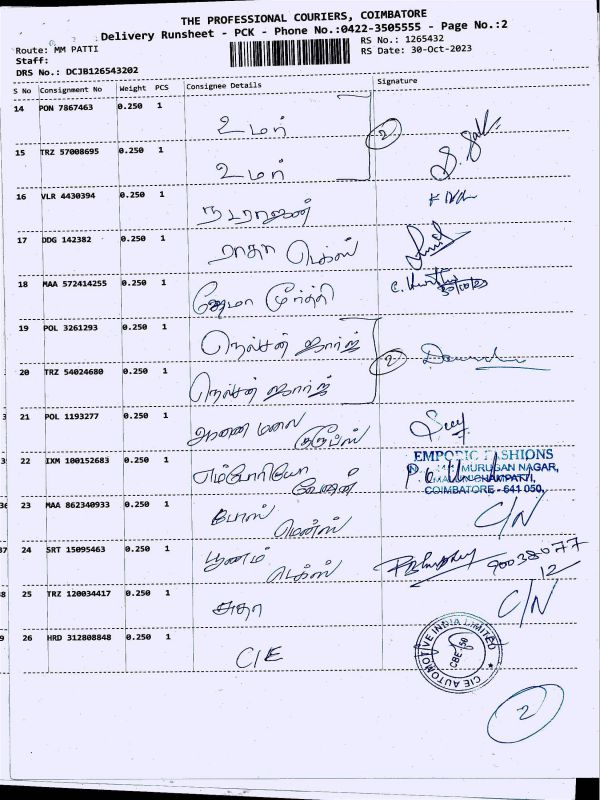 THE PROFESSIONAL COURIERS, COIMBATORE
Delivery Runsheet - PCK - Phone No.:0422-3505555 - Page No.:2
Route: MM PATTI
RS No.: 1265432
Staff:
RS Date: 30-Oct-2023
DRS No.: DCJB126543202
S No Consignment No Weight PCS Consignee Details Signature
14 PON 7867463 0.250 1 உமர் 2
15 TRZ 57008695 0.250 1 உமர்
16 VLR 4430394 0.250 1 நடராஜன்
17 DDG 142382 0.250 1 ராதா டெக்ஸ்
18 MAA 572414255 0.250 1 ஹேமா மூர்த்தி 30/10/23
19 POL 3261293 0.250 1 நெல்சன் ஜார்ஜ் 2
20 TRZ 54024680 0.250 1 நெல்சன் ஜார்ஜ்
21 POL 1193277 0.250 1 ஆனை மலை
22 IXM 100152683 0.250 1 எம்போரியோ பேஷன்
EMPORIC FASHIONS
MURUGAN NAGAR,
MALUMICHAMPATTI,
COIMBATORE - 641 050.
23 MAA 862340933 0.250 1 C/N
24 SRT 15095463 0.250 1 பூனம் டெக்ஸ் 90038077
12
25 TRZ 120034417 0.250 1 C/N
26 HRD 312808848 0.250 1 CIE
CIE AUTOMOTIVE INDIA LIMITED
CBE-50
2